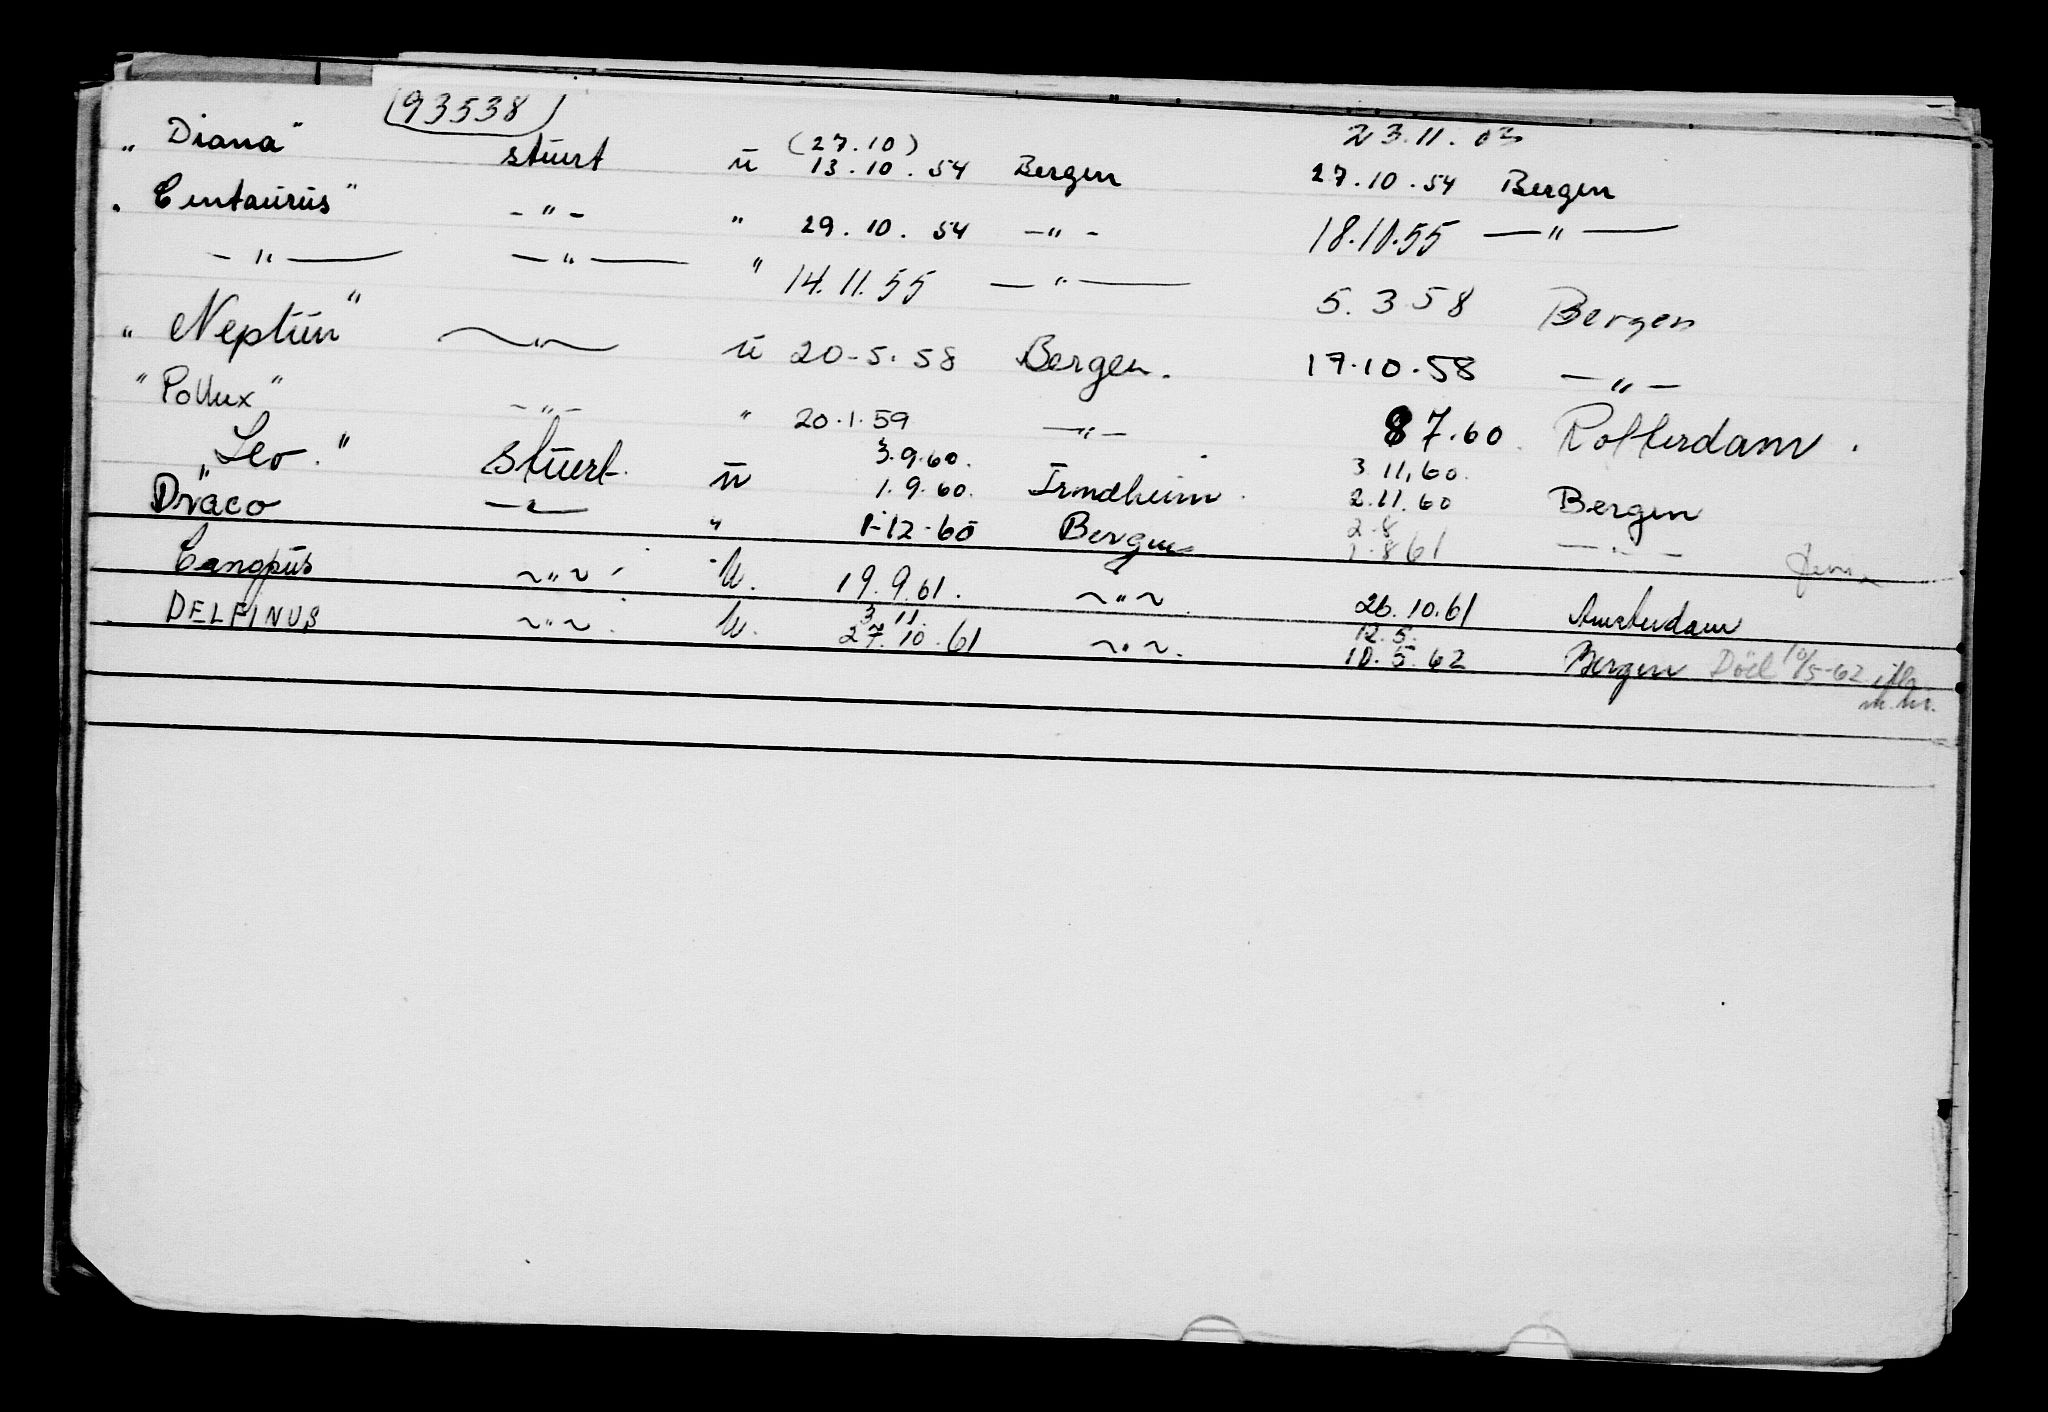 93538
23.11.03
(27.10)
"Diana" stuert u 13.10.54 Bergen 27.10.54 Bergen
"Centaurus" -"- " 29.10.54 -"- 18.10.55 -"-
-"- -"- " 14.11.55 -"- 5.3.58 Bergen
"Neptun" -"- u 20-5.58 Bergen. 17.10.58 -"-
"Pollux" -"- " 20.1.59 -"- 8 7.60. Rotterdam.
3.9.60. 3.11.60.
"Leo." stuert. u 1.9.60. Trondheim. 2.11.60 Bergen
2-8
Draco -"- " 1-12-60 Bergen 861 -"-
Canopus ~"~ u. 19.9.61. ~"~ 26.10.61 Amsterdam
3.11. 12.5.
DELFINUS ~"~. u. 27.10.61 ~"~. 10.5.62 Bergen Död 10/5-62 iflg
m.